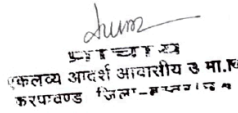 प्राचार्य
एकलव्य आदर्श आवासीय उ मा.वि
करपावण्ड जिला-